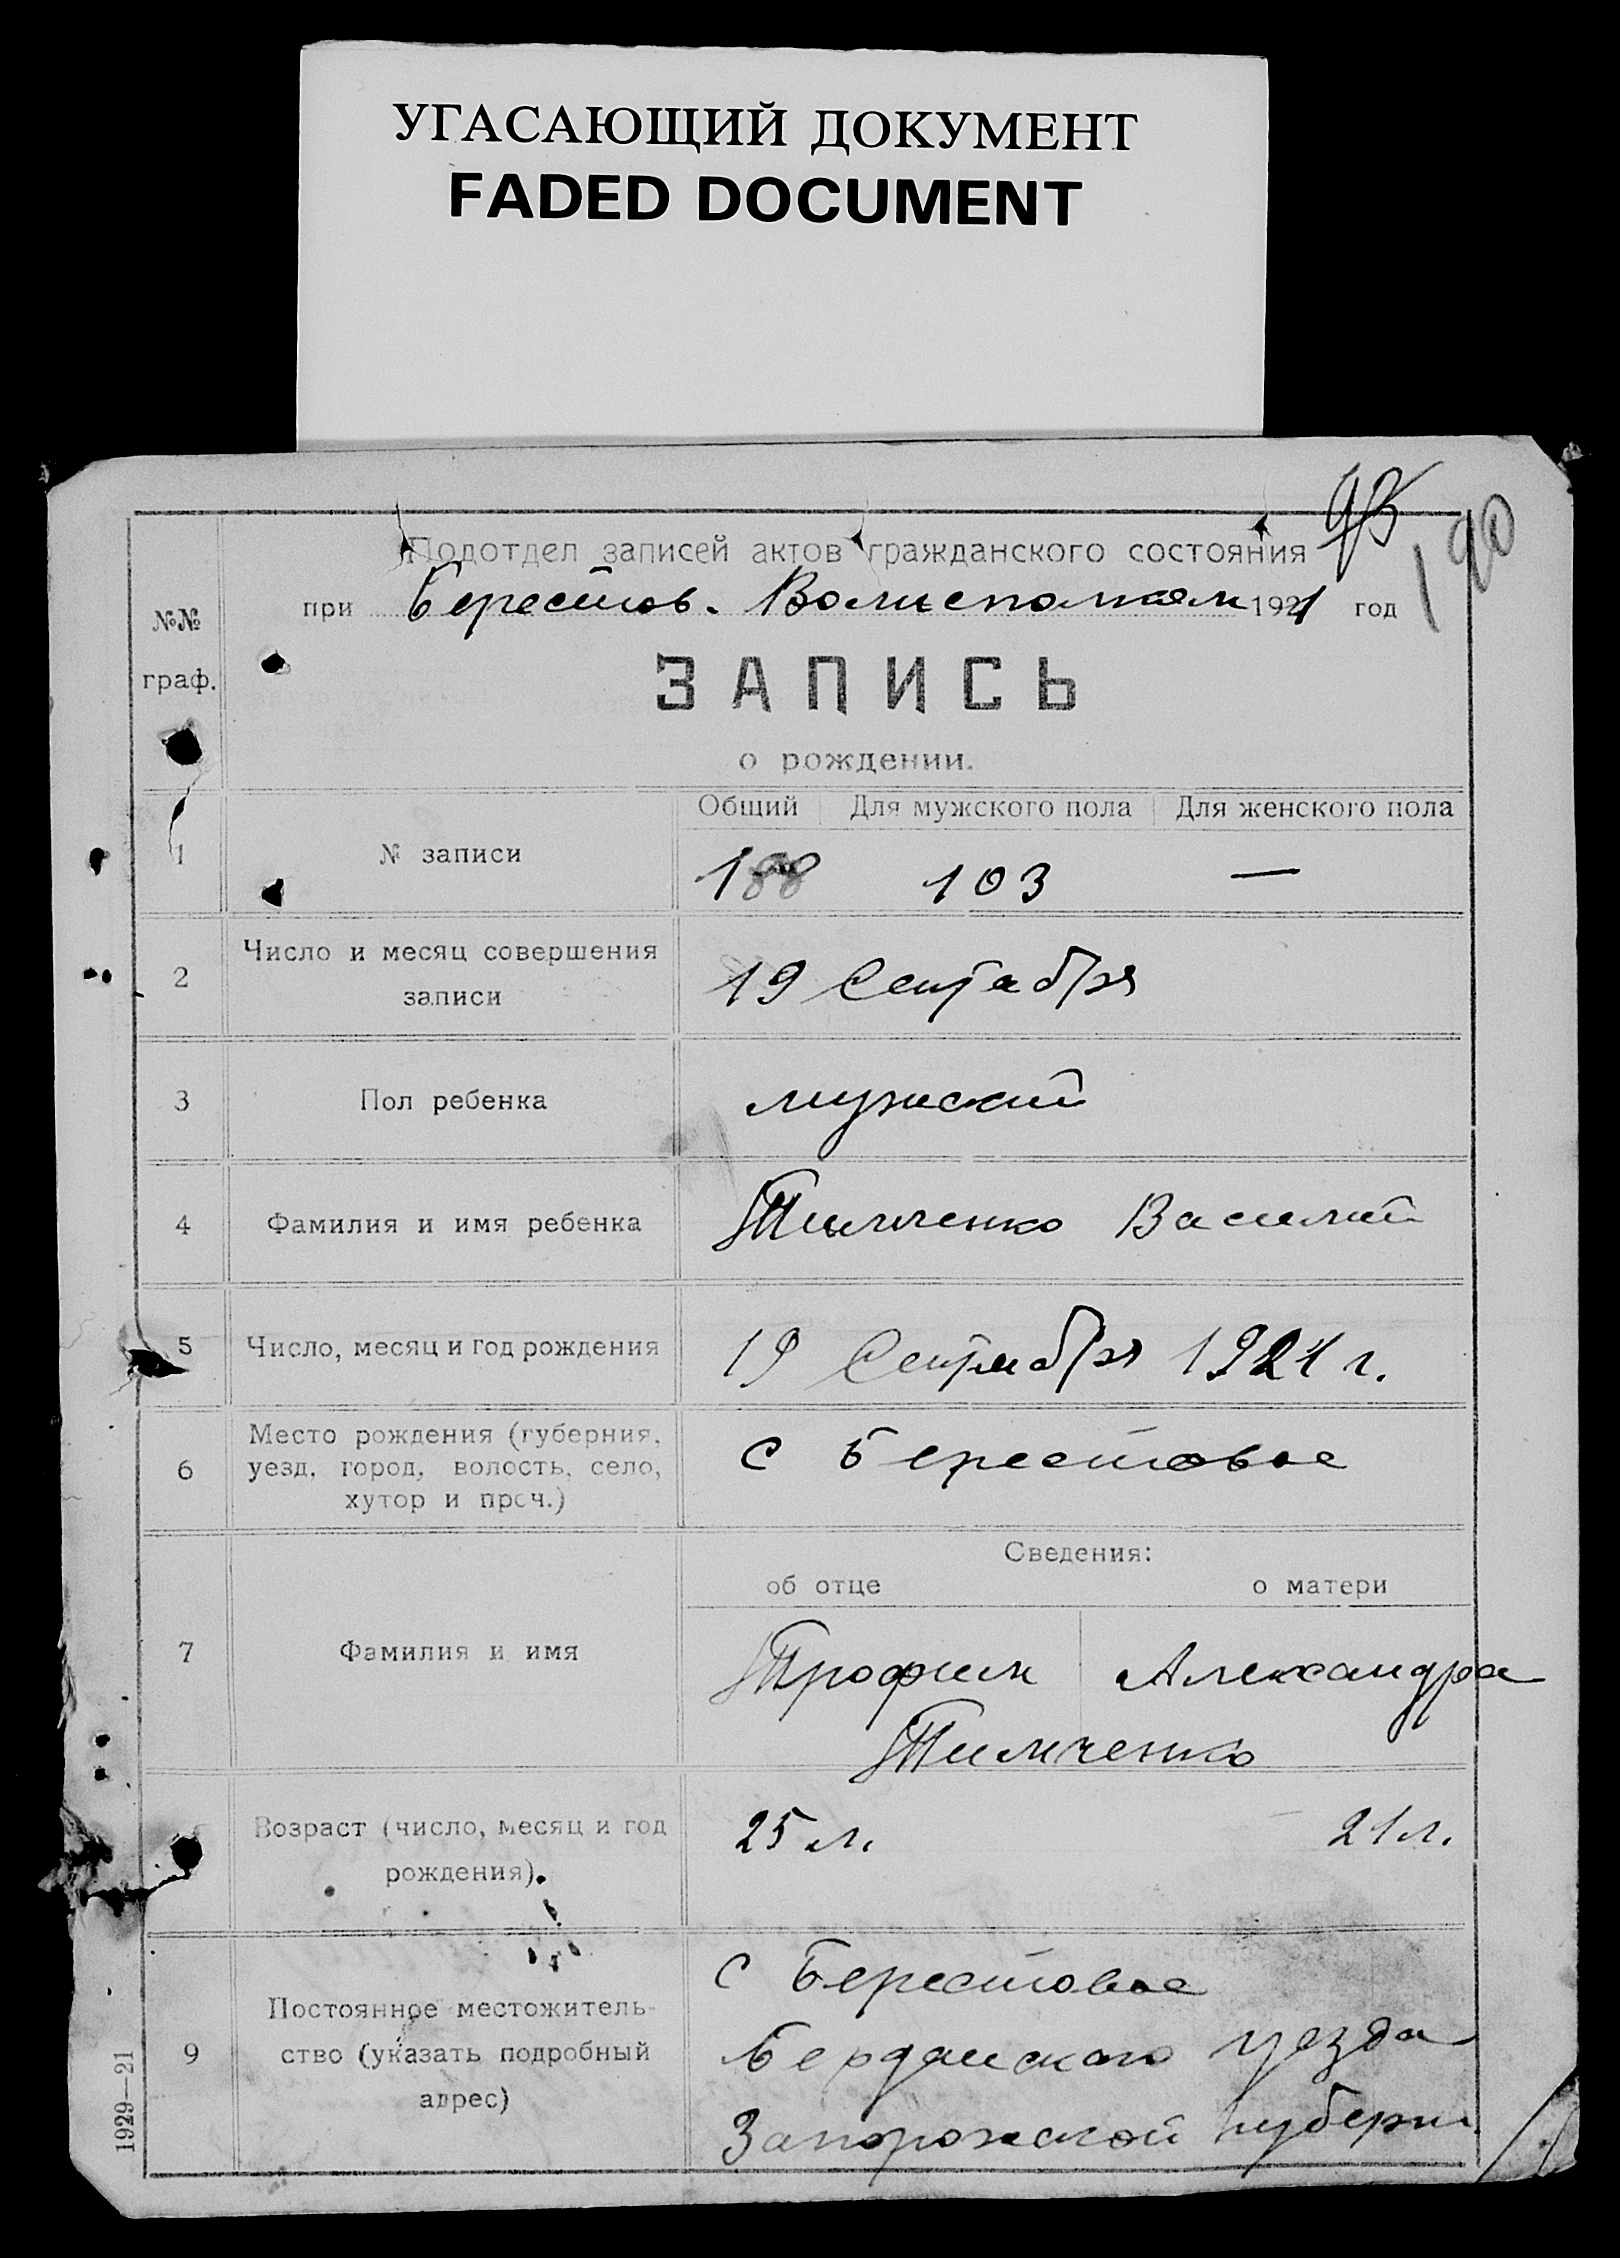 УГАСАЮЩИЙ ДОКУМЕНТ
FADED DOCUMENT
190
Подотдел записей актов гражданского состояния
при Берестов. Волисполком 1921 год
№№
граф.
ЗАПИСЬ
о рождении.
Общий Для мужского пола Для женского пола
1 № записи 188 103 —
2 Число и месяц совершения
записи
19 Сентября
3 Пол ребенка мужский
4 Фамилия и имя ребенка Тимченко Василий
5 Число, месяц и год рождения 19 Сентября 1921 г.
6 Место рождения (губерния,
уезд, город, волость, село,
хутор и проч.)
С Берестовое
Сведения:
об отце о матери
7 Фамилия и имя Трофим Александра
Тимченко
Возраст (число, месяц и год
рождения).
25 л. 21 л.
9 Постоянное местожитель-
ство (указать подробный
адрес)
С Берестовое
Бердянского уезда
Запорожской губерни
1929—21